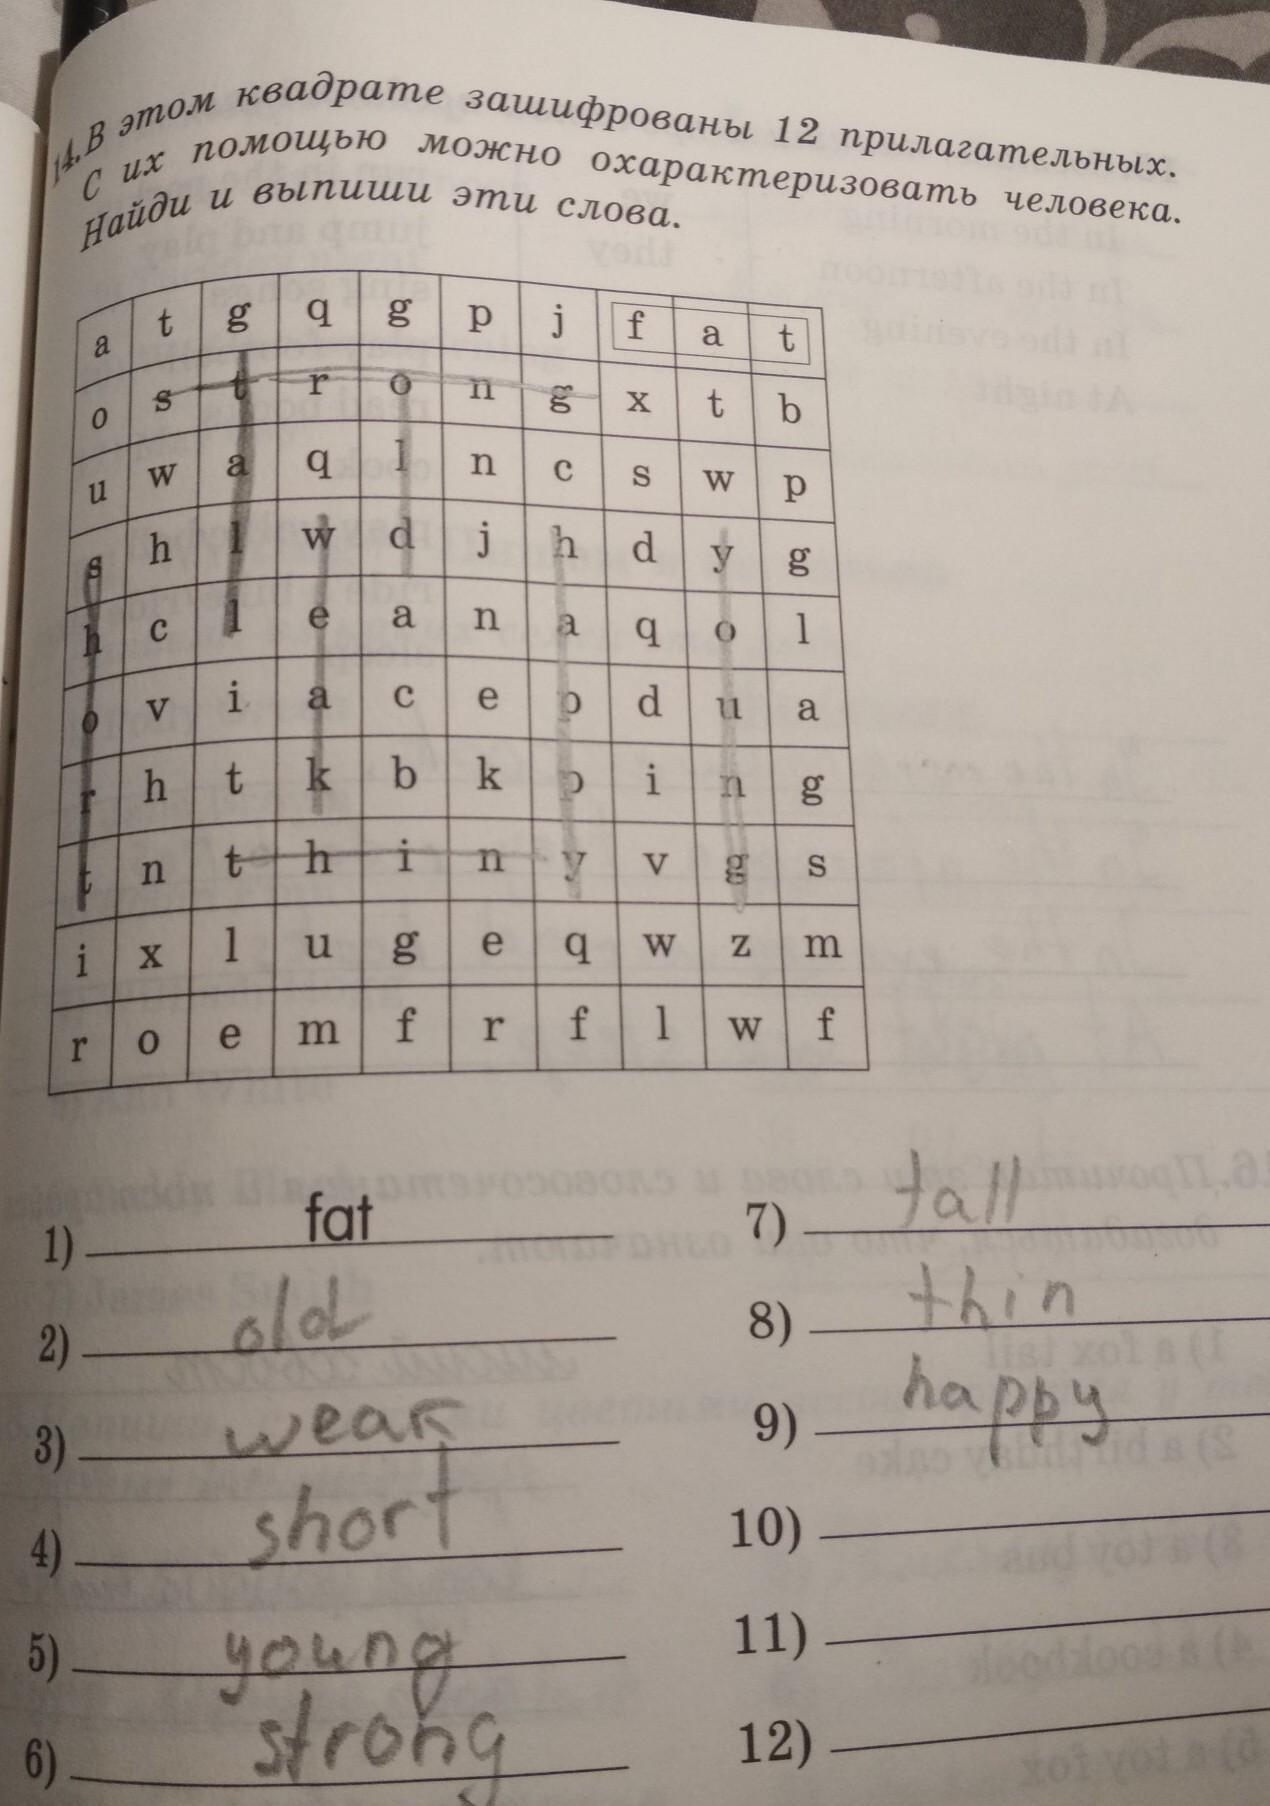 14. В этом квадрате зашифрованы 12 прилагательных.
С их помощью можно охарактеризовать человека.
Найди и выпиши эти слова.
a t g q g p j f a t
o s t r o n g x t b
u w a q l n c s w p
s h l w d j h d y g
h c l e a n a q o l
o v i a c e p d u a
r h t k b k p i n g
t n t h i n y v g s
i x l u g e q w z m
r o e m f r f l w f
1) fat
2) old
3) weak
4) short
5) young
6) strong
7) tall
8) thin
9) happy
10)
11)
12)